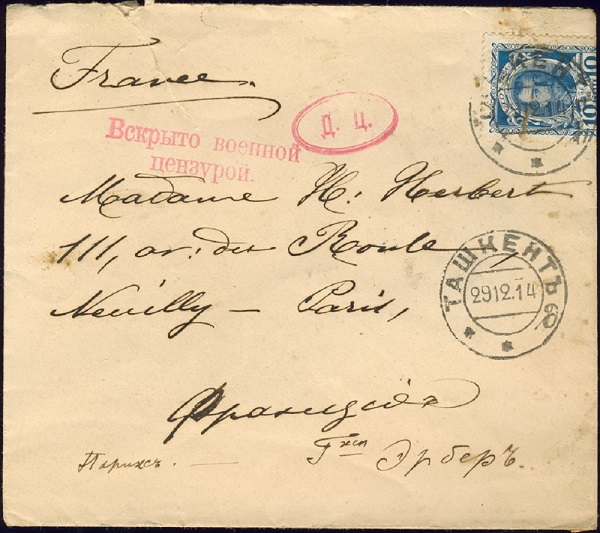 France.
ТАШКЕНТЪ
10
Д. Ц.
Вскрыто военной
цензурой.
Madame H: Herbert
111, av: du Roule,
Neuilly — Paris,
ТАШКЕНТЪ
29 12.14
Франція
Парижъ. —
Г-жѣ Эрберъ.